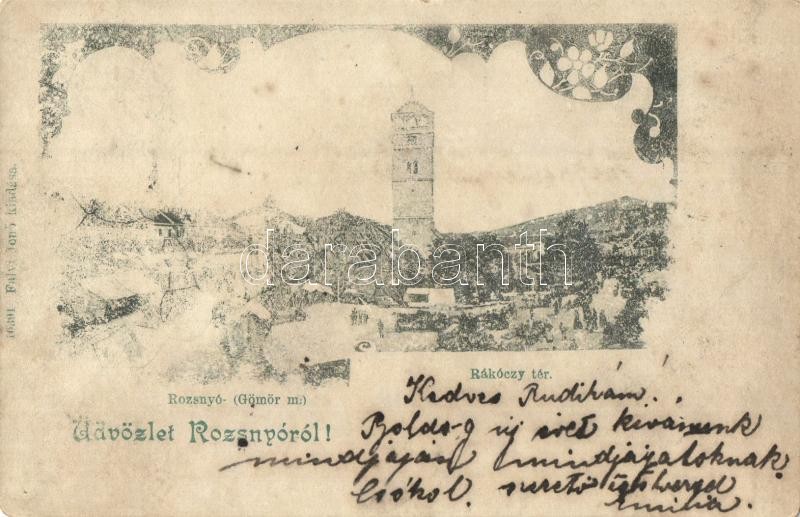 Rákóczy tér.
Rozsnyó- (Gömör m:)
Üdvözlet Rozsnyóról!
Kedves Rudikám!
Boldog új évet kivánunk
mindnyájan mindnyájatoknak
Csókol. szerető testvered
Emilia.
10391 Falvi Jenő kiadása.
darabanth